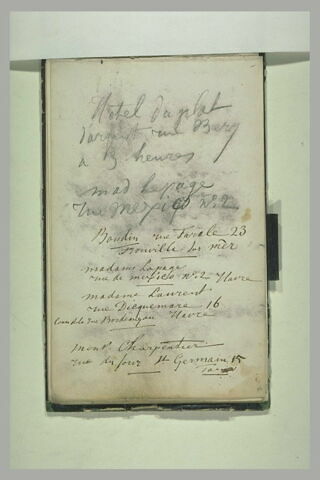 Hotel du plat
d'argent rue Bery
a 3 heures
mad Lepage
rue mexico n° 2
Boudin rue 23
Trouville sur mer
madame Lepage
rue de mexico n° 2 Havre
madame Laurent
rue Dicquemare 16
Havre
mons. Charpentier
rue du four St Germain 15